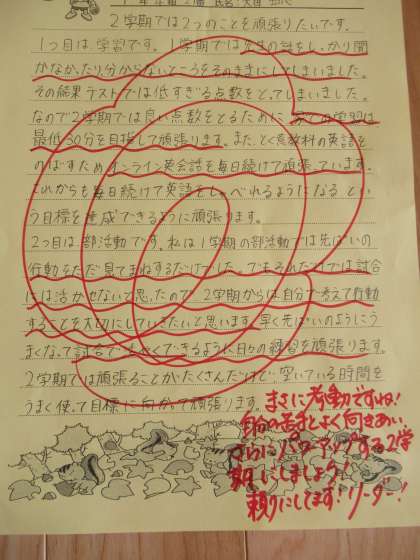 2学期では2つのことを頑張りたいです。
1つ目は、学習です。1学期では先生の話をしっかり聞
かなかったり、分からないところをそのままにしてしまいました。
その結果テストでは低すぎる点数をとってしまいました。
なので2学期では良い点数をとるために、家での学習は
最低30分を目指して頑張ります。また、とく意教科の英語を
のばすためオンライン英会話を毎日続けて頑張っています。
これからも毎日続けて英語をしゃべれるようになるとい
う目標を達成できるように頑張ります。
2つ目は、部活動です。私は1学期の部活動では先ぱいの
行動をただ見てまねするだけでした。でもそれだけでは試合
には活かせないと思ったので、2学期からは自分で考えて行動
することを大切にしていきたいと思います。早く先ぱいのようにう
まくなって試合でかつやくできるように日々の練習を頑張ります。
2学期では頑張ることがたくさんだけど、空いている時間を
うまく使って目標に向かって頑張ります。
まさに考動ですね!
自分の苦手とよく向きあい、
さらにパワーアップする2学
期にしましょう!
頼りにしてます!リーダー!